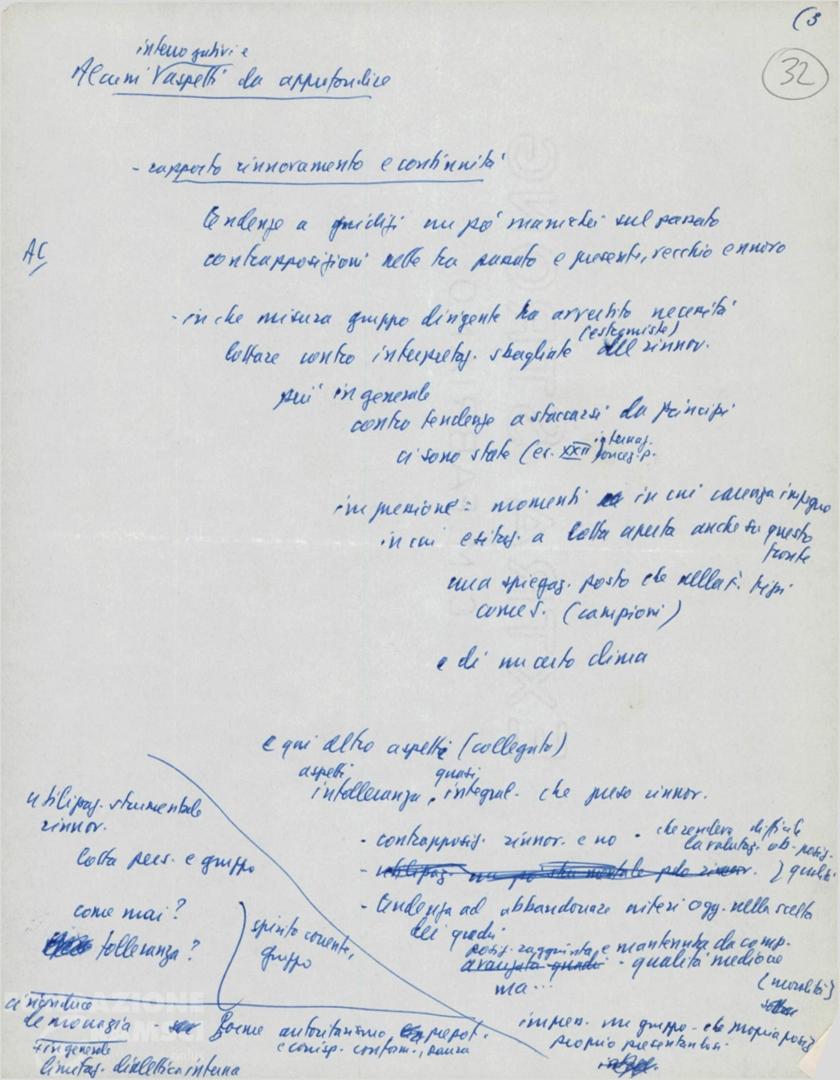 (3
32
interrogativi e
Alcuni aspetti da approfondire
- rapporto rinnovamento e continuità
tendenze a giudizi un pò manichei sul passato
AC
contrapposizioni nette tra passato e presente, vecchio e nuovo
- in che misura gruppo dirigente ha avvertito necessità
(estremiste)
lottare contro interpretaz. sbagliate del rinnov.
più in generale
contro tendenze a staccarsi da principi
ci sono state (es. XXII
impressione: momenti in cui carenza impegno
in cui esitaz. a lotta aperta anche su questo
fronte
una spiegaz. posto che
(campioni)
e di un certo clima
e qui altro aspetto (collegato)
aspetti quasi
intolleranza, integral. che preso rinnov.
utilizzaz. strumentale
rinnov.
lotta pers. e gruppo
- contrapposiz. rinnov. e no - che rendeva difficile
la valutaz. ob. posiz.
- utilizzaz. un po strumentale
come mai?
tolleranza?
spirito
gruppo
- tendenza ad abbandonare criteri ogg. nella scelta
dei quadri
posiz. raggiunta e mantenuta da comp.
avanzata quadri - qualità mediocre
ma...
(moralità)
FONDAZIONE
GRAMSCI
democrazia - forme autoritarismo,
e conformi., paura
in generale
limitaz. dialettica interna
impress. un gruppo - che propria posiz.